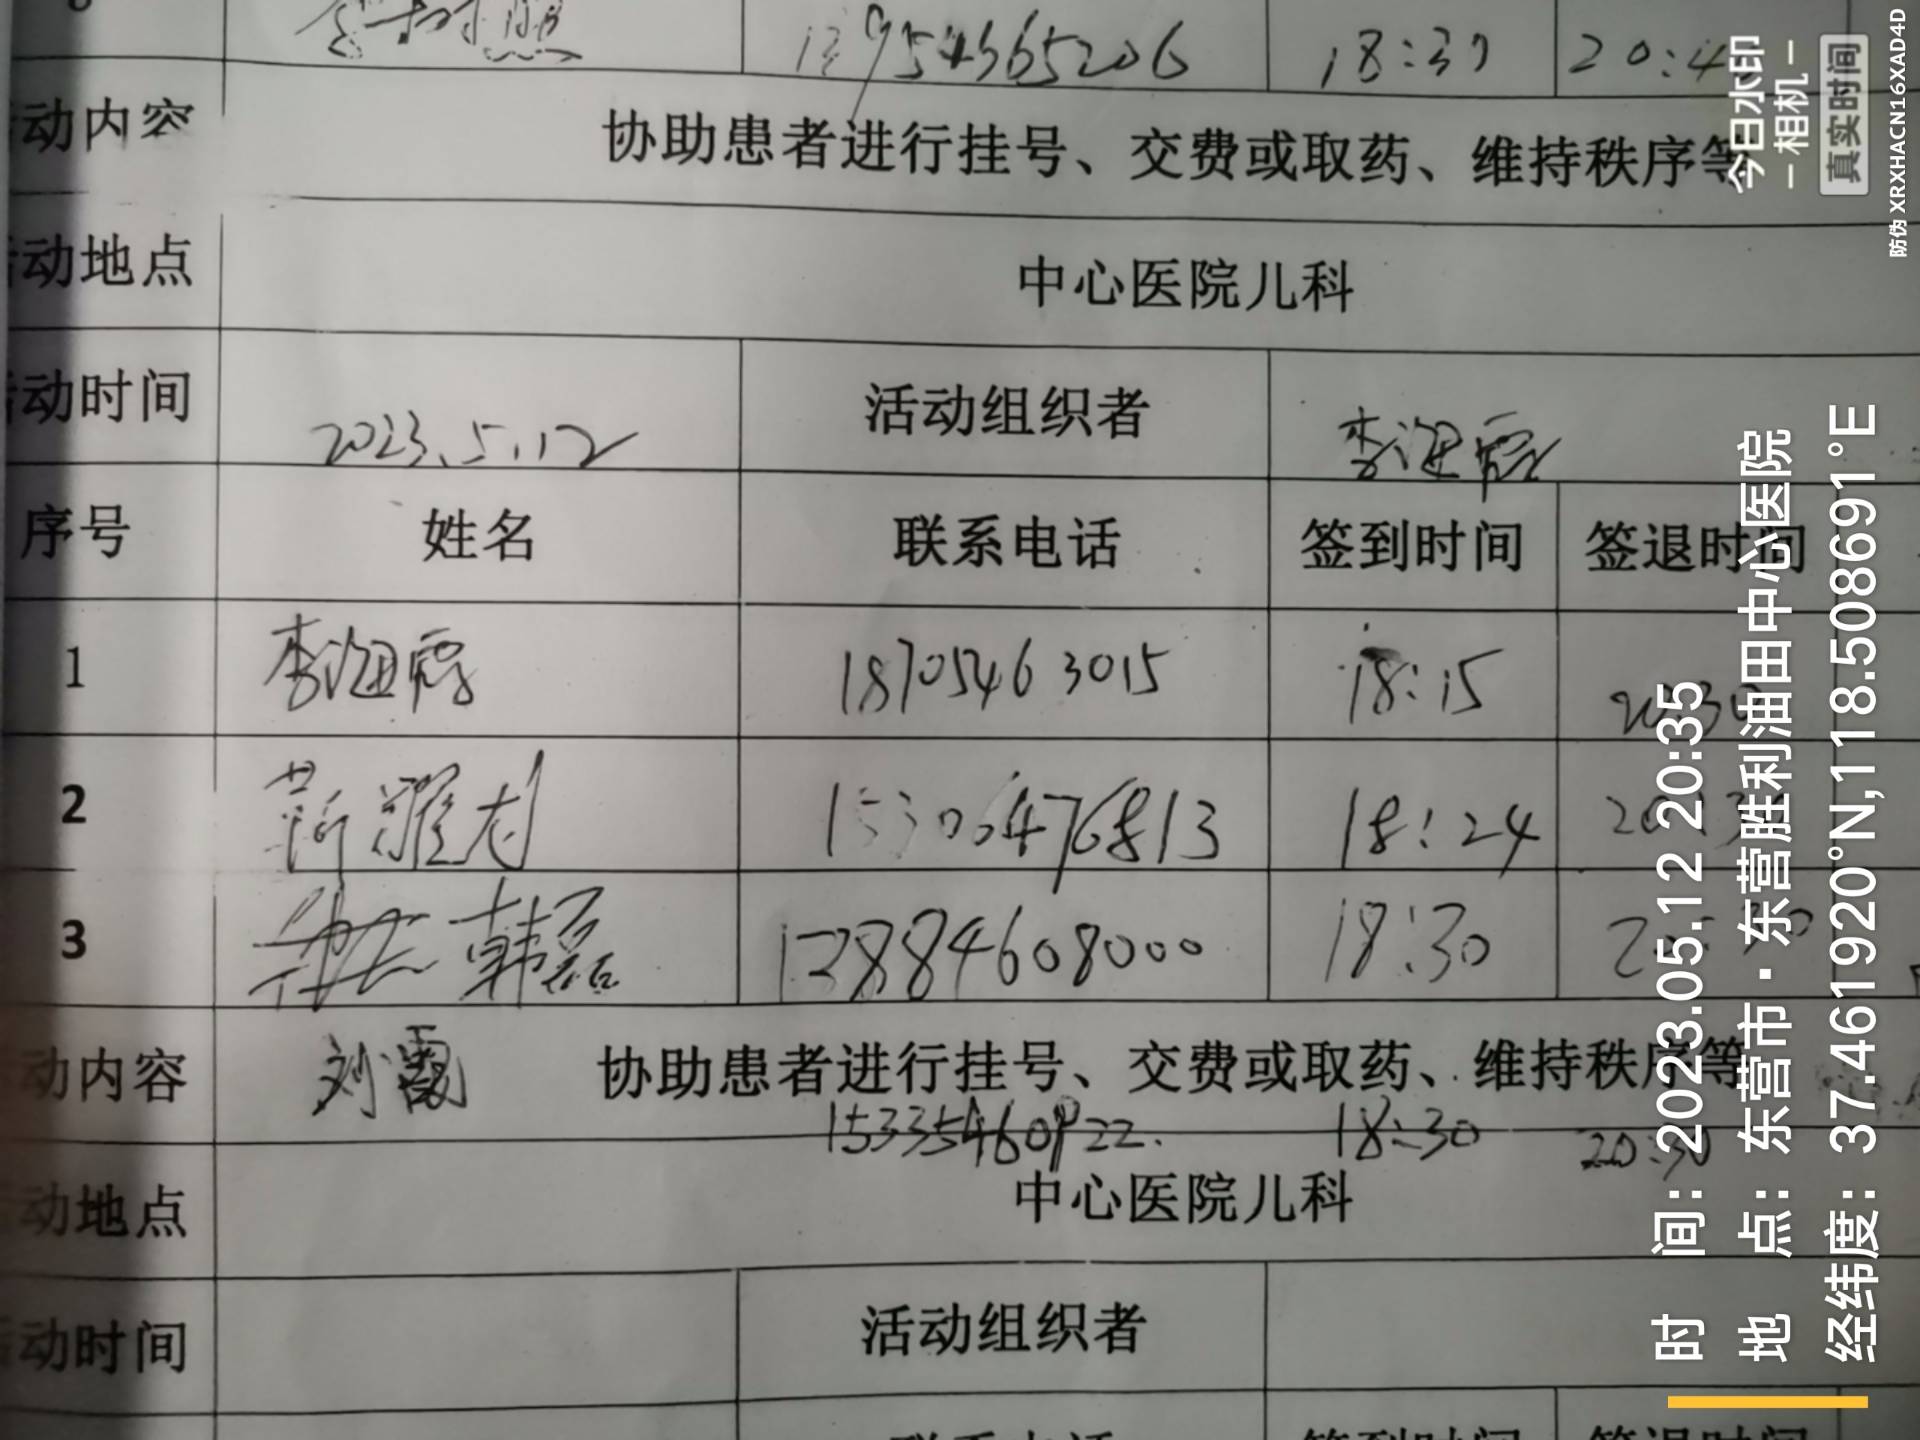 13954365206 18:31 20:4
动内容 协助患者进行挂号、交费或取药、维持秩序等
动地点 中心医院儿科
动时间 2023.5.12 活动组织者 李海霞
序号 姓名 联系电话 签到时间 签退时间
1 李海霞 18705463015 18:15 20:30
2 15300476813 18:24 20:3
3 韩磊 13884608000 18:30
刘霞 15335460922. 18:30 20:30
动内容 协助患者进行挂号、交费或取药、维持秩序等
动地点 中心医院儿科
动时间 活动组织者
联系电话 签到时间 签退时间
今日水印
相机
真实时间
防伪 XRXHACN16XAD4D
时 间: 2023.05.12 20:35
地 点: 东营市·东营胜利油田中心医院
经纬度: 37.461920°N,118.508691°E